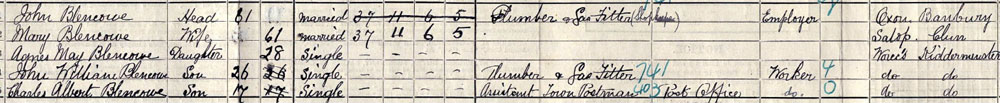 John Blencowe Head 61 married 37 11 6 5 Plumber & Gas Fitter Employer Oxon. Banbury
Mary Blencowe Wife 61 married 37 11 6 5 Salop. Clun
Agnes May Blencowe Daughter 28 Single – – – – Worc's Kidderminster
John William Blencowe Son 26 26 Single – – – – Plumber & Gas Fitter 741 Worker 4 do do
Charles Albert Blencowe Son 17 17 Single – – – – Assistant Town Postman 403 Post Office do. 0 do do